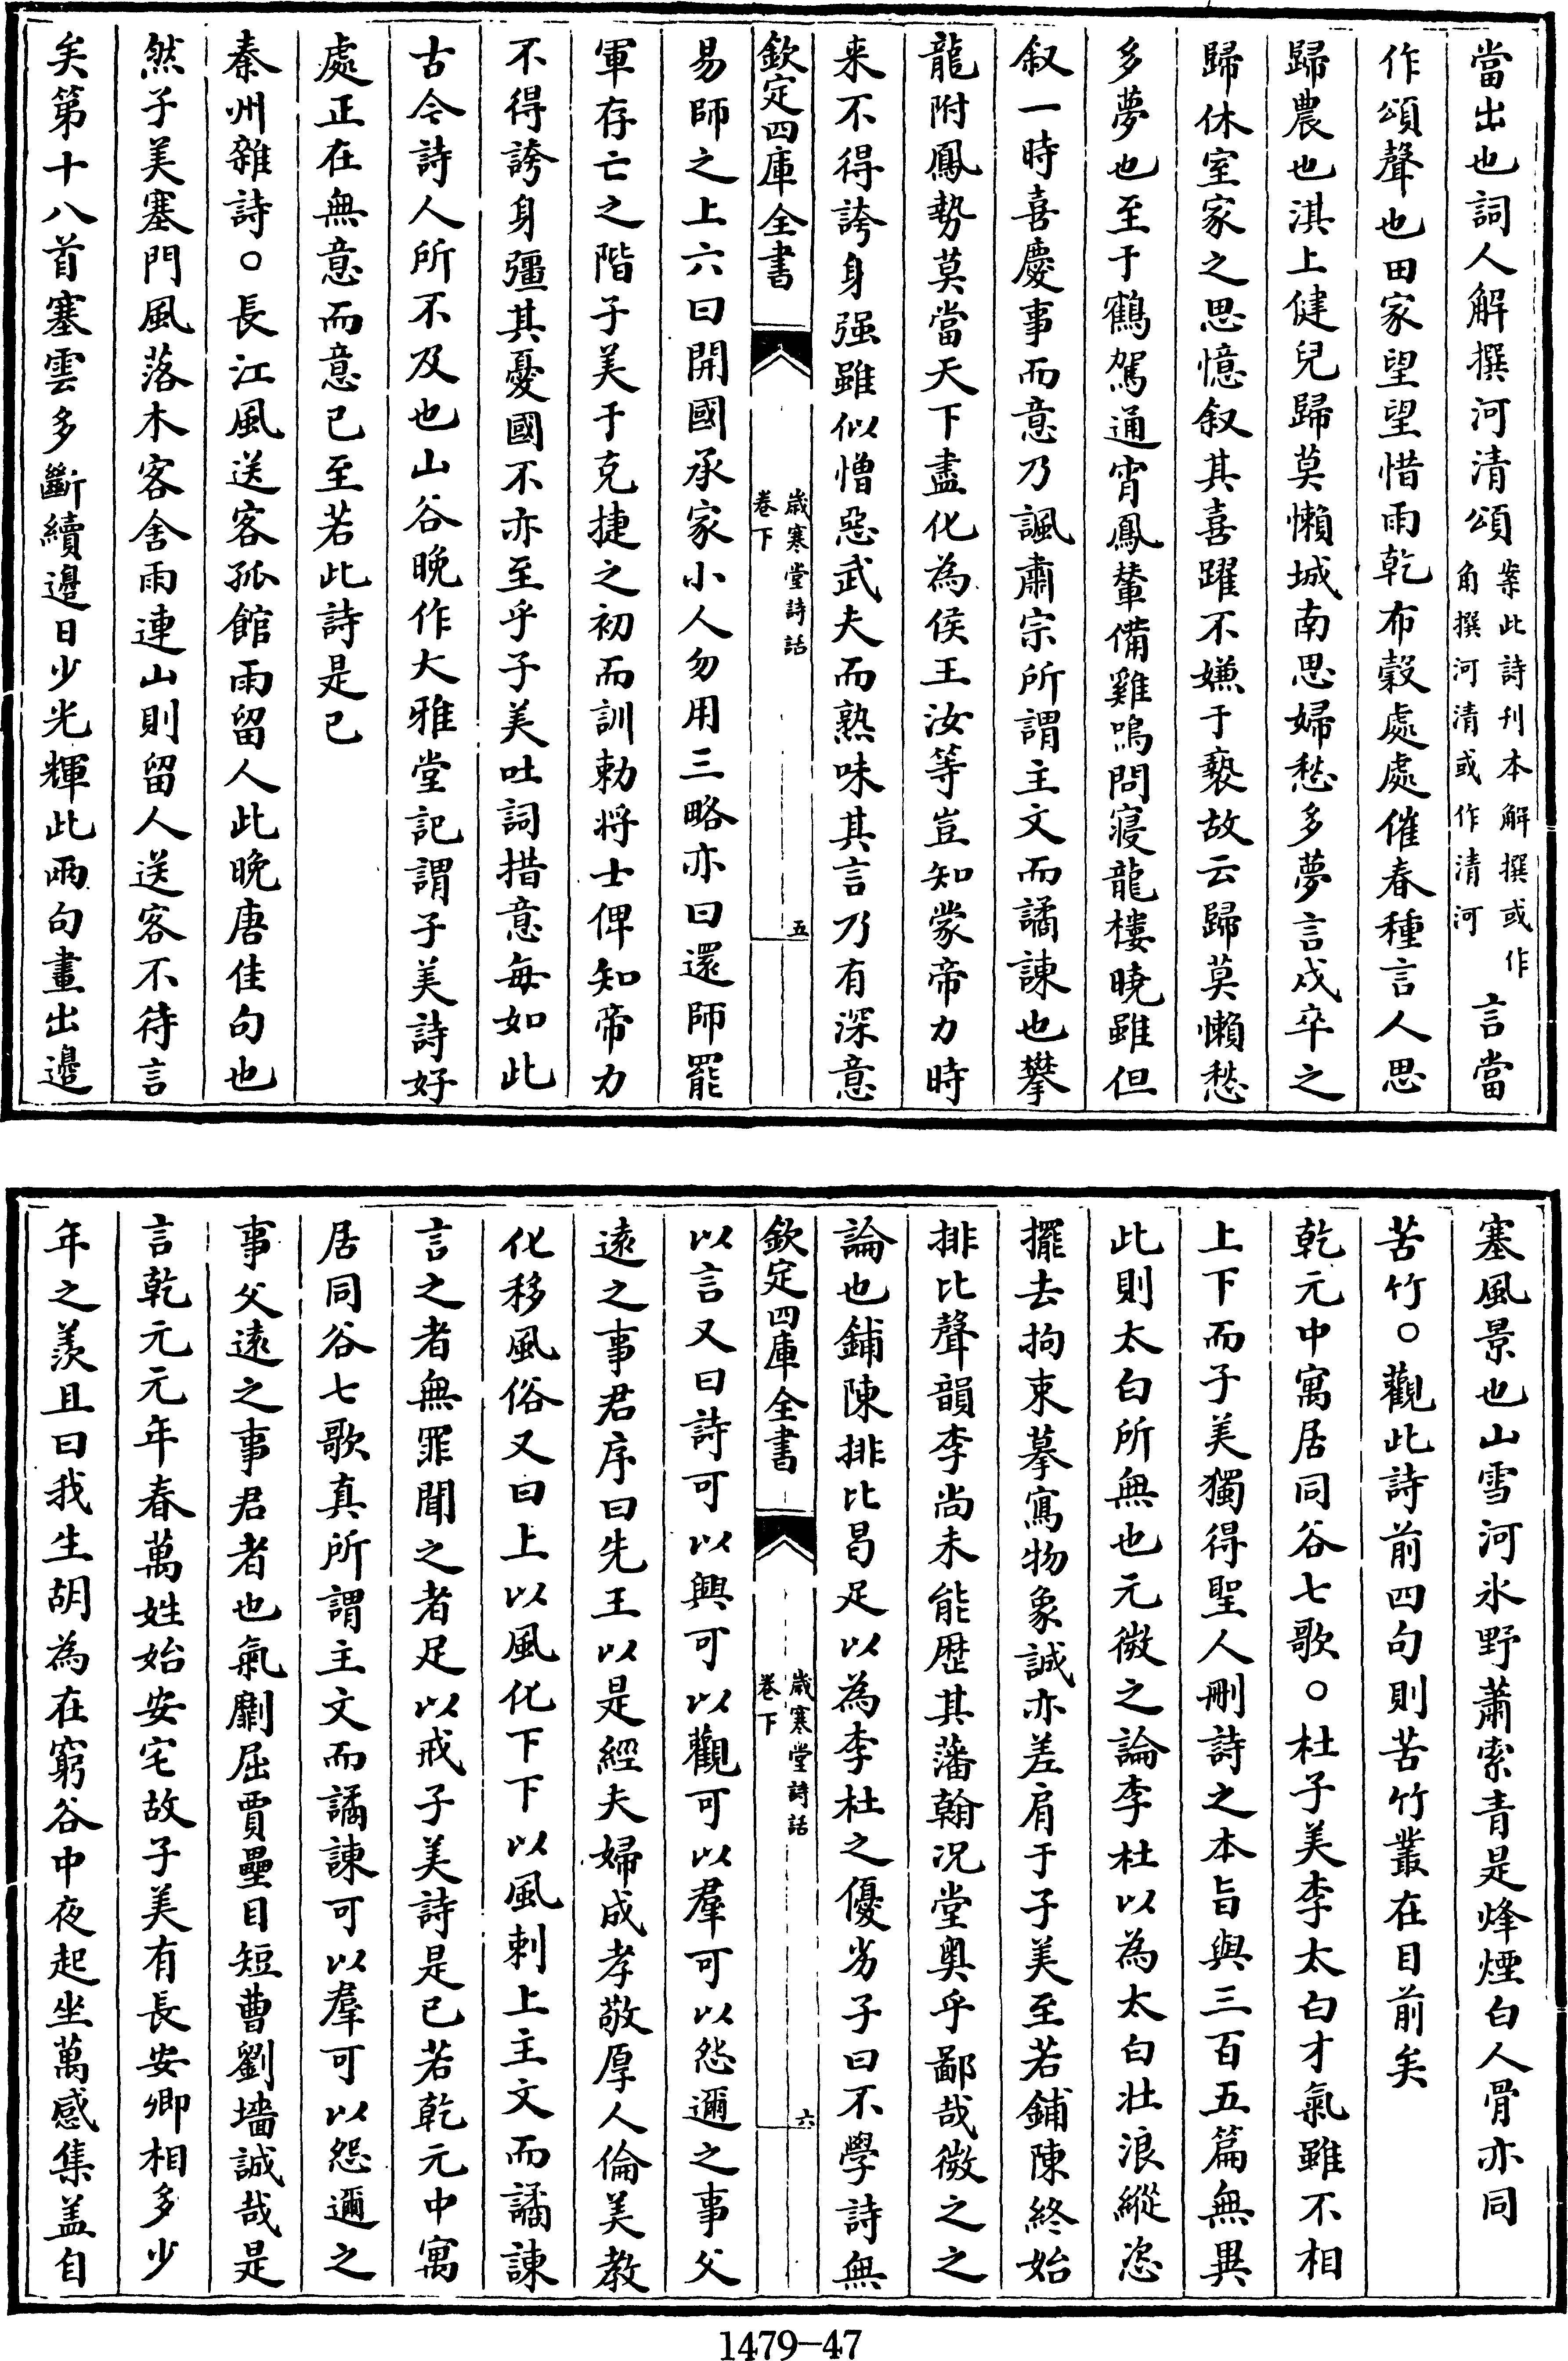 當出也詞人解撰河清頌案此詩刊本解撰或作角撰河清或作清河言當
作頌聲也田家望望惜雨乾布穀處處催春種言人思
歸農也淇上健兒歸莫懶城南思婦愁多夢言戍卒之
歸休室家之思憶叙其喜躍不嫌于䙝故云歸莫懶愁
多夢也至于鶴駕通宵鳳輦備雞鳴問寢龍樓曉雖但
叙一時喜慶事而意乃諷肅宗所謂主文而譎諫也攀
龍附鳳勢莫當天下盡化為侯王汝等豈知蒙帝力時
来不得誇身强雖似憎惡武夫而熟味其言乃有深意
欽定四庫全書
歲寒堂詩話
卷下
五
易師之上六曰開國承家小人勿用三略亦曰還師罷
軍存亡之階子美于克捷之初而訓勅将士俾知帝力
不得誇身彊其憂國不亦至乎子美吐詞措意每如此
古今詩人所不及也山谷晚作大雅堂記謂子美詩好
處正在無意而意已至若此詩是已
秦州雜詩○長江風送客孤館雨留人此晚唐佳句也
然子美塞門風落木客舍雨連山則留人送客不待言
矣第十八首塞雲多斷續邊日少光輝此兩句畫出邊
塞風景也山雪河氷野蕭索青是烽煙白人骨亦同
苦竹○觀此詩前四句則苦竹叢在目前矣
乾元中寓居同谷七歌○杜子美李太白才氣雖不相
上下而子美獨得聖人刪詩之本旨與三百五篇無異
此則太白所無也元微之論李杜以為太白壯浪縱恣
擺去拘束摹寫物象誠亦差肩于子美至若鋪陳終始
排比聲韻李尚未能歴其藩翰況堂奥乎鄙哉微之之
論也鋪陳排比曷足以為李杜之優劣子曰不學詩無
欽定四庫全書
歲寒堂詩話
卷下
六
以言又曰詩可以興可以觀可以羣可以怨邇之事父
遠之事君序曰先王以是經夫婦成孝敬厚人倫美教
化移風俗又曰上以風化下下以風刺上主文而譎諫
言之者無罪聞之者足以戒子美詩是已若乾元中寓
居同谷七歌真所謂主文而譎諫可以羣可以怨邇之
事父遠之事君者也氣劘屈賈壘目短曹劉墻誠哉是
言乾元元年春萬姓始安宅故子美有長安卿相多少
年之羨且曰我生胡為在窮谷中夜起坐萬感集盖自
1479-47